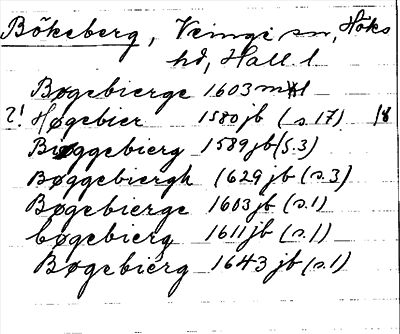 Bökeberg, Veinge sn, Höks
hd, Hall. l.
Bøgebierge 1603 mtl
?! Høgebier 1580 jb (s. 17) 18
Bøggebierg 1589 jb (s. 3)
Bøggebiergh (1629 jb (s. 3)
Bøgebierge 1603 jb (s. 1)
bøgebierg 1611 jb (s. 1)
Bøgebierg 1643 jb (s. 1)